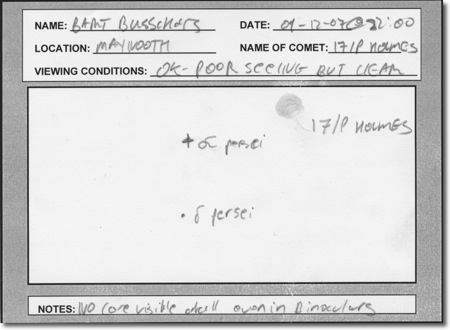 NAME: BART BUSSCHOTS DATE: 01-12-07 @ 22:00
LOCATION: MAYNOOTH NAME OF COMET: 17/P HOLMES
VIEWING CONDITIONS: OK - POOR SEEING BUT CLEAR
17/P HOLMES
α persei
δ persei
NOTES: NO core visible even in Binoculars